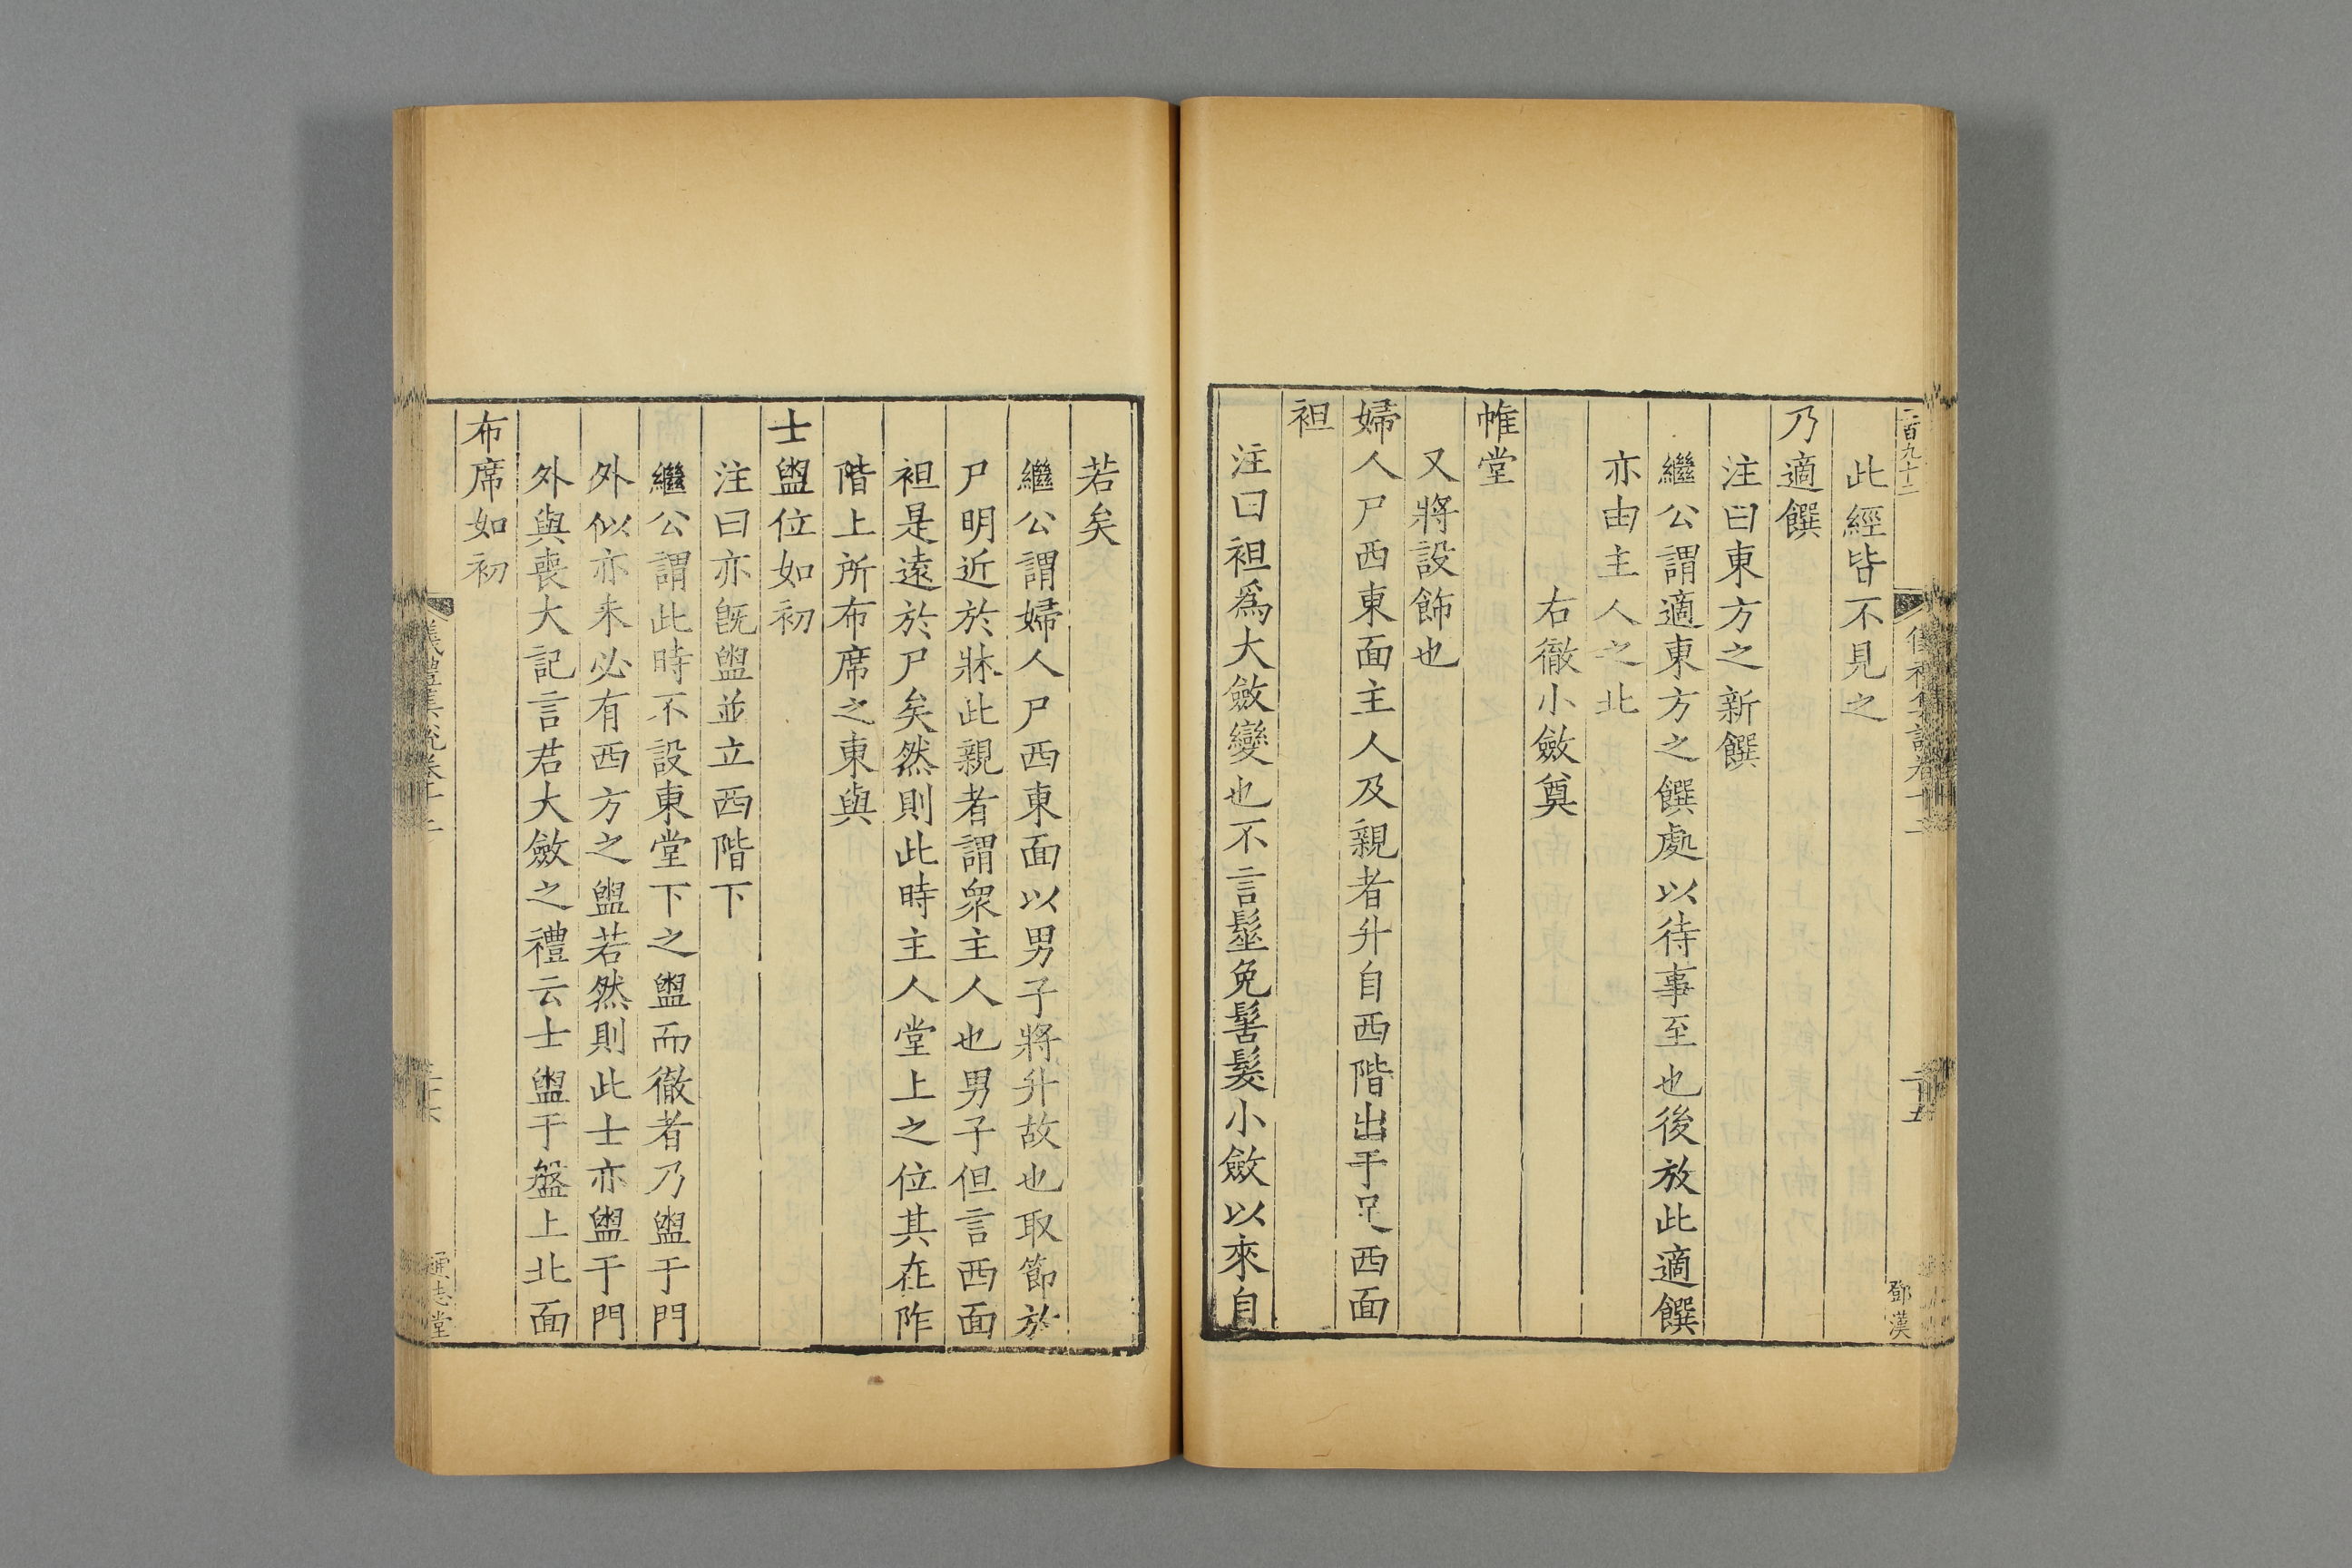 二百九十二
此經皆不見之
乃適饌
注曰東方之新饌
繼公謂適東方之饌處以待事至也後放此適饌
亦由主人之北
右徹小斂奠
帷堂
又將設飾也
婦人尸西東面主人及親者升自西階出于足西面
袒
注曰袒爲大斂變也不言髽免髺髮小斂以來自
鄧漢
若矣
繼公謂婦人尸西東面以男子將升故也取節於
尸明近於牀此親者謂衆主人也男子但言西面
袒是遠於尸矣然則此時主人堂上之位其在阼
階上所布席之東與
士盥位如初
注曰亦旣盥並立西階下
繼公謂此時不設東堂下之盥而徹者乃盥于門
外似亦未必有西方之盥若然則此士亦盥于門
外與喪大記言君大斂之禮云士盥于盤上北面
布席如初
通志堂